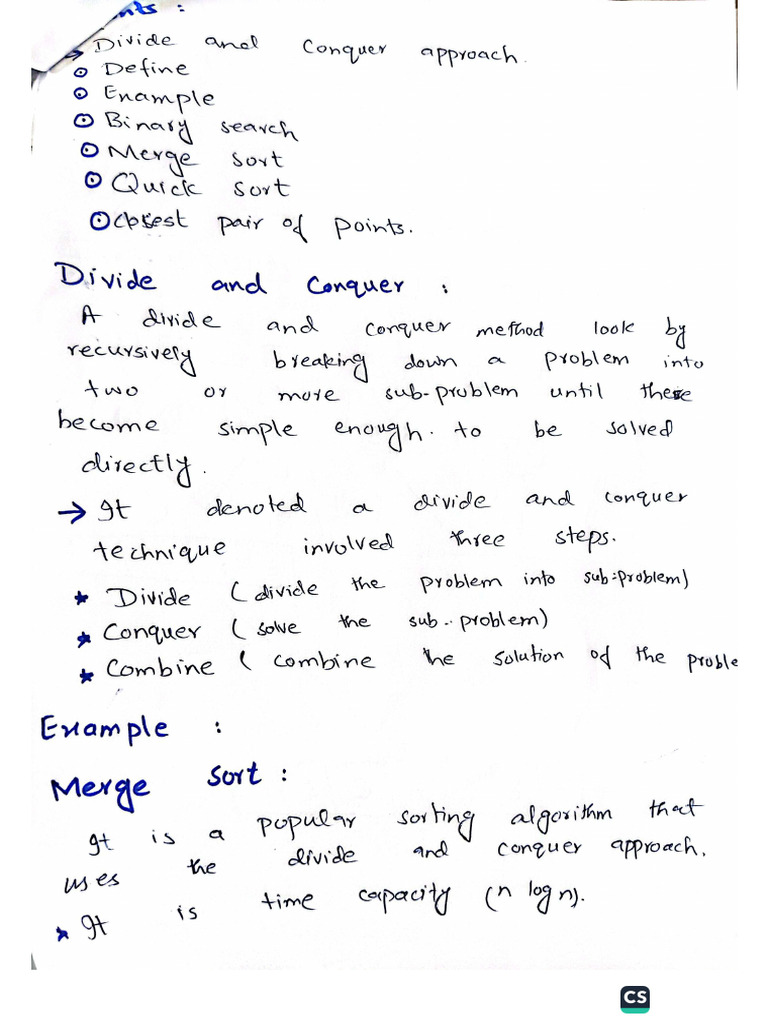 nts :
→ Divide and Conquer approach.
⊙ Define
⊙ Example
⊙ Binary search
⊙ Merge sort
⊙ Quick sort
⊙ Closest pair of points.
Divide and Conquer :
A divide and conquer method look by
recursively breaking down a problem into
two or more sub-problem until these
become simple enough. to be solved
directly.
→ It denoted a divide and conquer
technique involved three steps.
★ Divide (divide the problem into sub-problem)
★ Conquer (solve the sub-problem)
★ Combine (combine the solution of the proble
Example :
Merge sort :
It is a popular sorting algorithm that
uses the divide and conquer approach.
★ It is time capacity (n log n).
CS